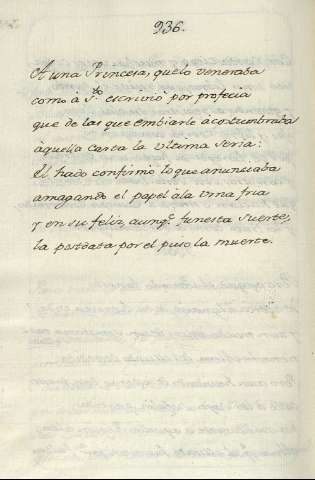 936.
A una Princesa, que lo veneraba
como à S.to escrivió por profecia
que de las que embiarle acostumbraba
aquella carta la ultima seria:
El hado confirmó lo que anunciaba
amagando el papel à la urna fria
y en su feliz, aunq.e funesta suerte,
la postdata por el puso la muerte.